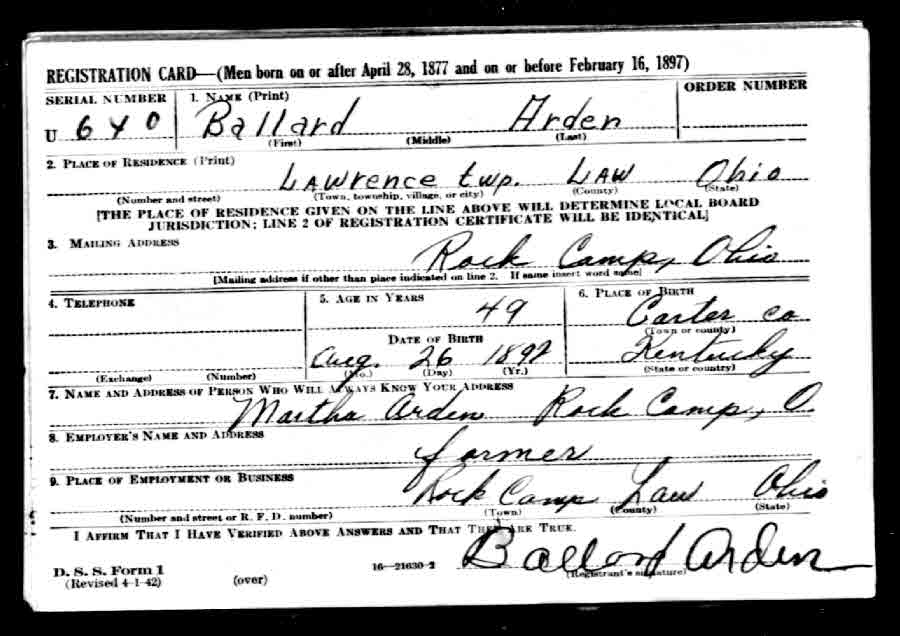 REGISTRATION CARD—(Men born on or after April 28, 1877 and on or before February 16, 1897)
SERIAL NUMBER 1. NAME (Print) ORDER NUMBER
U 640 Ballard Arden
(First) (Middle) (Last)
2. PLACE OF RESIDENCE (Print)
LAWrence twp. LAW Ohio
(Number and street) (Town, township, village, or city) (County) (State)
[THE PLACE OF RESIDENCE GIVEN ON THE LINE ABOVE WILL DETERMINE LOCAL BOARD
JURISDICTION; LINE 2 OF REGISTRATION CERTIFICATE WILL BE IDENTICAL]
3. MAILING ADDRESS
Rock Camp, Ohio
[Mailing address if other than place indicated on line 2. If same insert word same]
4. TELEPHONE 5. AGE IN YEARS 6. PLACE OF BIRTH
49 Carter co
(Town or county)
DATE OF BIRTH
Aug. 26 1892 Kentucky
(Exchange) (Number) (Mo.) (Day) (Yr.) (State or country)
7. NAME AND ADDRESS OF PERSON WHO WILL ALWAYS KNOW YOUR ADDRESS
Martha Arden Rock Camp, O.
8. EMPLOYER'S NAME AND ADDRESS
farmer
9. PLACE OF EMPLOYMENT OR BUSINESS
Rock Camp Law Ohio
(Number and street or R. F. D. number) (Town) (County) (State)
I AFFIRM THAT I HAVE VERIFIED ABOVE ANSWERS AND THAT THEY ARE TRUE.
Ballard Arden
D. S. S. Form 1 16—21630-2 (Registrant's signature)
(Revised 4-1-42) (over)